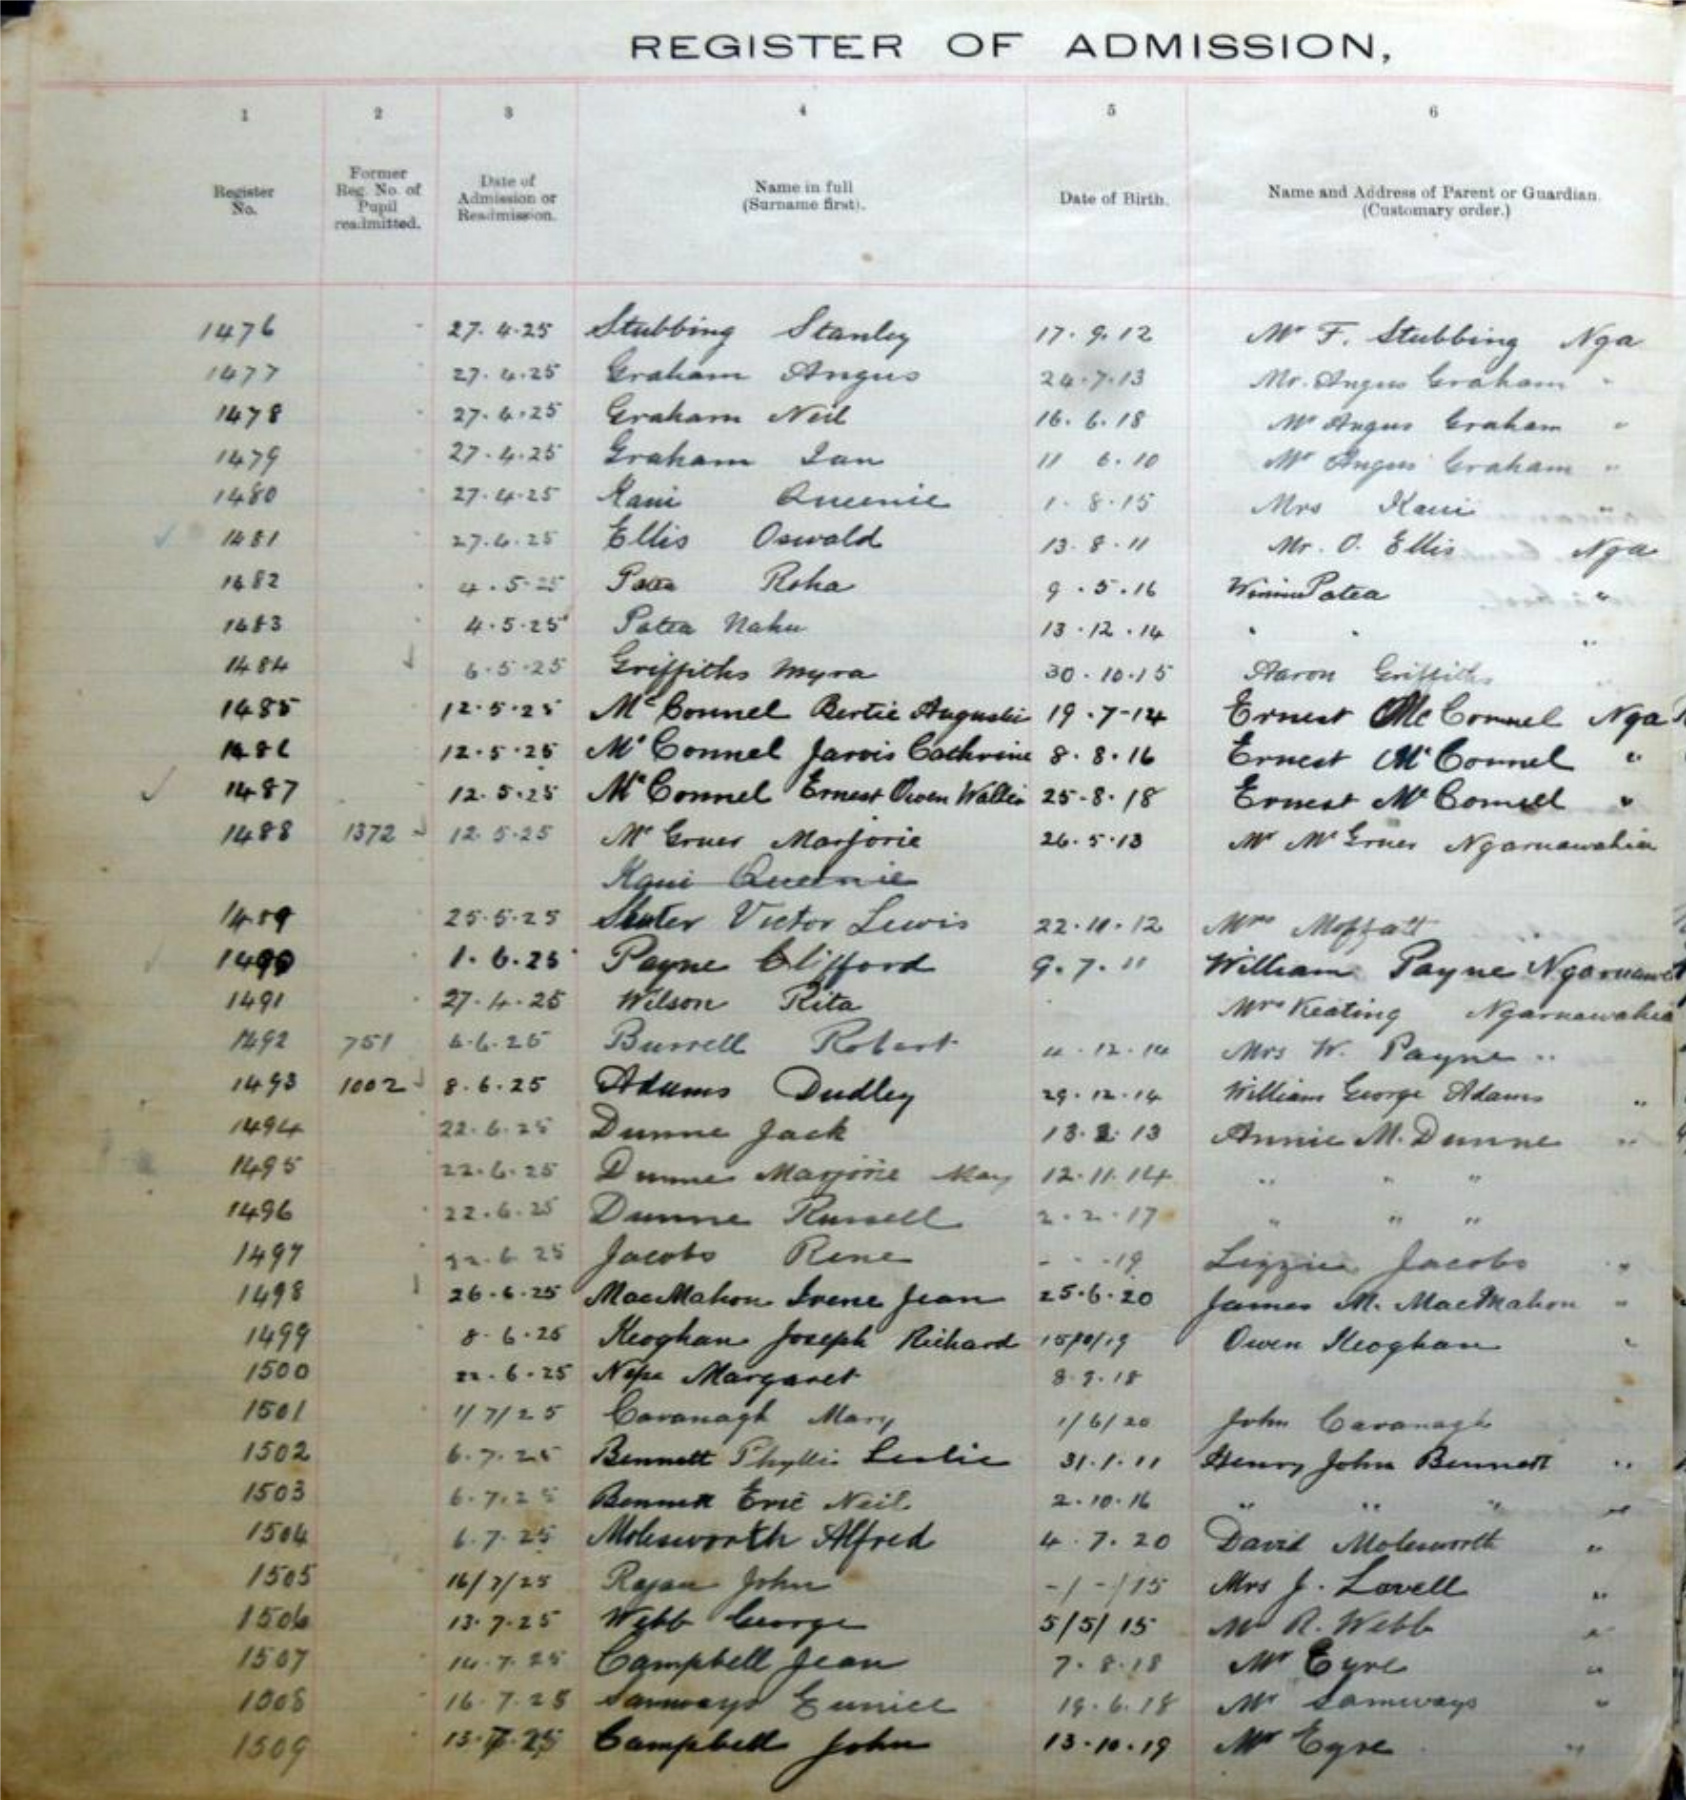 REGISTER OF ADMISSION,
1 2 3 4 5 6
Register No. Former Reg. No. of Pupil readmitted. Date of Admission or Readmission. Name in full (Surname first). Date of Birth. Name and Address of Parent or Guardian. (Customary order.)
1476 27.4.25 Stubbing Stanley 17.9.12 Mr F. Stubbing Nga
1477 27.4.25 Graham Angus 24.7.13 Mr. Angus Graham "
1478 27.4.25 Graham Neil 16.6.18 Mr Angus Graham "
1479 27.4.25 Graham Ian 11 6.10 Mr Angus Graham "
1480 27.4.25 Kani Queenie 1.8.15 Mrs Kani "
1481 27.4.25 Ellis Oswald 13.8.11 Mr. O. Ellis Nga
1482 4.5.25 Roha 9.5.16 Patea "
1483 4.5.25 Patea Nahu 13.12.14 " " "
1484 6.5.25 Griffiths Myra 30.10.15 Aaron Griffiths "
1485 12.5.25 McConnel Bertie 19.7-14 Ernest McConnel Nga
1486 12.5.25 McConnel Jarvis Cathrine 8.8.16 Ernest McConnel "
1487 12.5.25 McConnel Ernest Owen 25-8.18 Ernest McConnell "
1488 1372 12.5.25 McGruer Marjorie 26.5.13 Mr McGruer Ngaruawahia
Kani Queenie
1489 25.5.25 Victor Lewis 22.11.12 Mrs Moffatt
1490 1.6.25 Payne Clifford 9.7.11 William Payne
1491 27.4.25 Wilson Rita Mrs Keating Ngaruawahia
1492 751 Burrell Robert 4.12.14 Mrs W. Payne "
1493 1002 8.6.25 Adams Dudley 29.12.14 William George Adams "
1494 22.6.25 Dunne Jack 13. 13 Annie M. Dunne "
1495 22.6.25 Dunne Marjorie May 12.11.14 " " "
1496 22.6.25 Dunne Russell 2.2.17 " " "
1497 22.6.25 Jacobs Rene - - -19 Lizzie Jacobs "
1498 26.6.25 MacMahon Irene Jean 25.6.20 James M. MacMahon "
1499 8.6.25 Keoghan Joseph Richard 15/10/19 Owen Keoghan "
1500 22.6.25 Nepe Margaret 8.9.18
1501 1/7/25 Cavanagh Mary 1/6/20 John Cavanagh
1502 6.7.25 Bennett Phyllis Leslie 31.1.11 Henry John Bennett "
1503 6.7.25 Bennett Eric Neil 2.10.16 " " " "
1504 6.7.25 Molesworth Alfred 4.7.20 David Molesworth "
1505 16/7/25 John -/-/15 Mrs J. Lovell "
1506 13.7.25 Webb George 5/5/15 Mr R. Webb "
1507 14.7.25 Campbell Jean 7.8.18 Mr Eyre "
1508 16.7.25 Samways Eunice 19.6.18 Mr Samways "
1509 13.7.25 Campbell John 13.10.19 Mr Eyre "